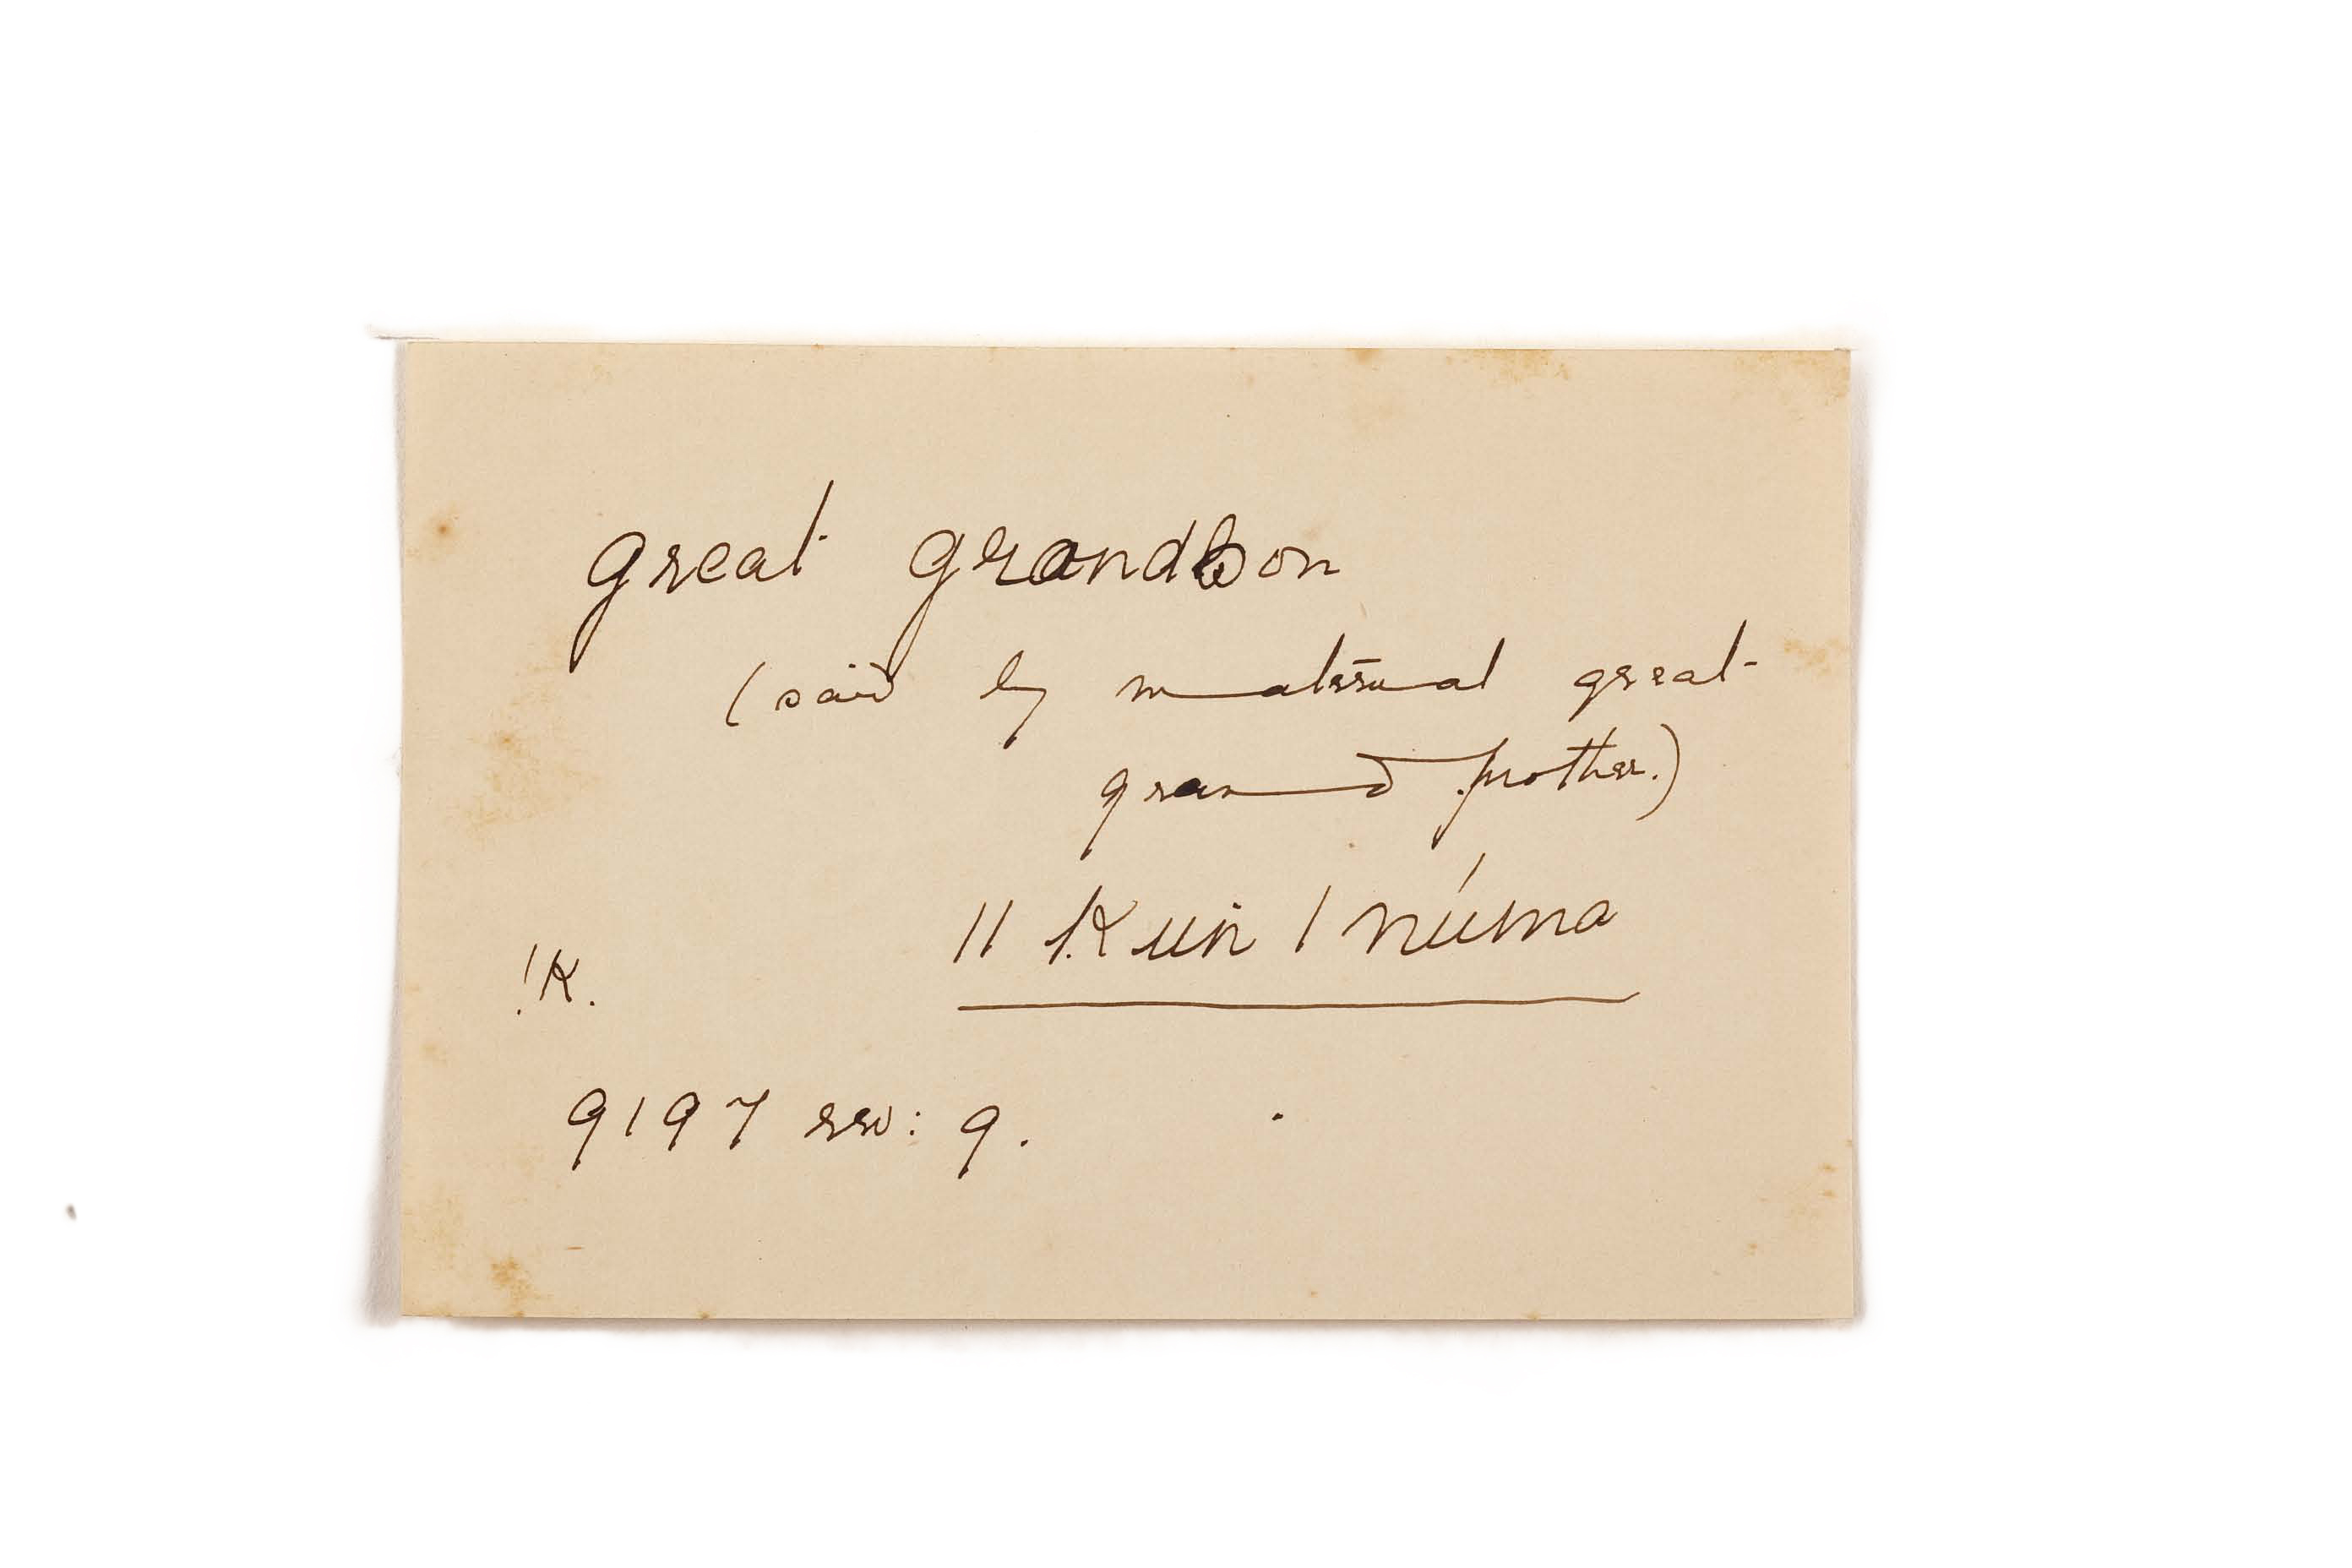 great grandson
(said by maternal great-
grandmother.)
|| Kuin | núma
!K.
9197 rev: 9.